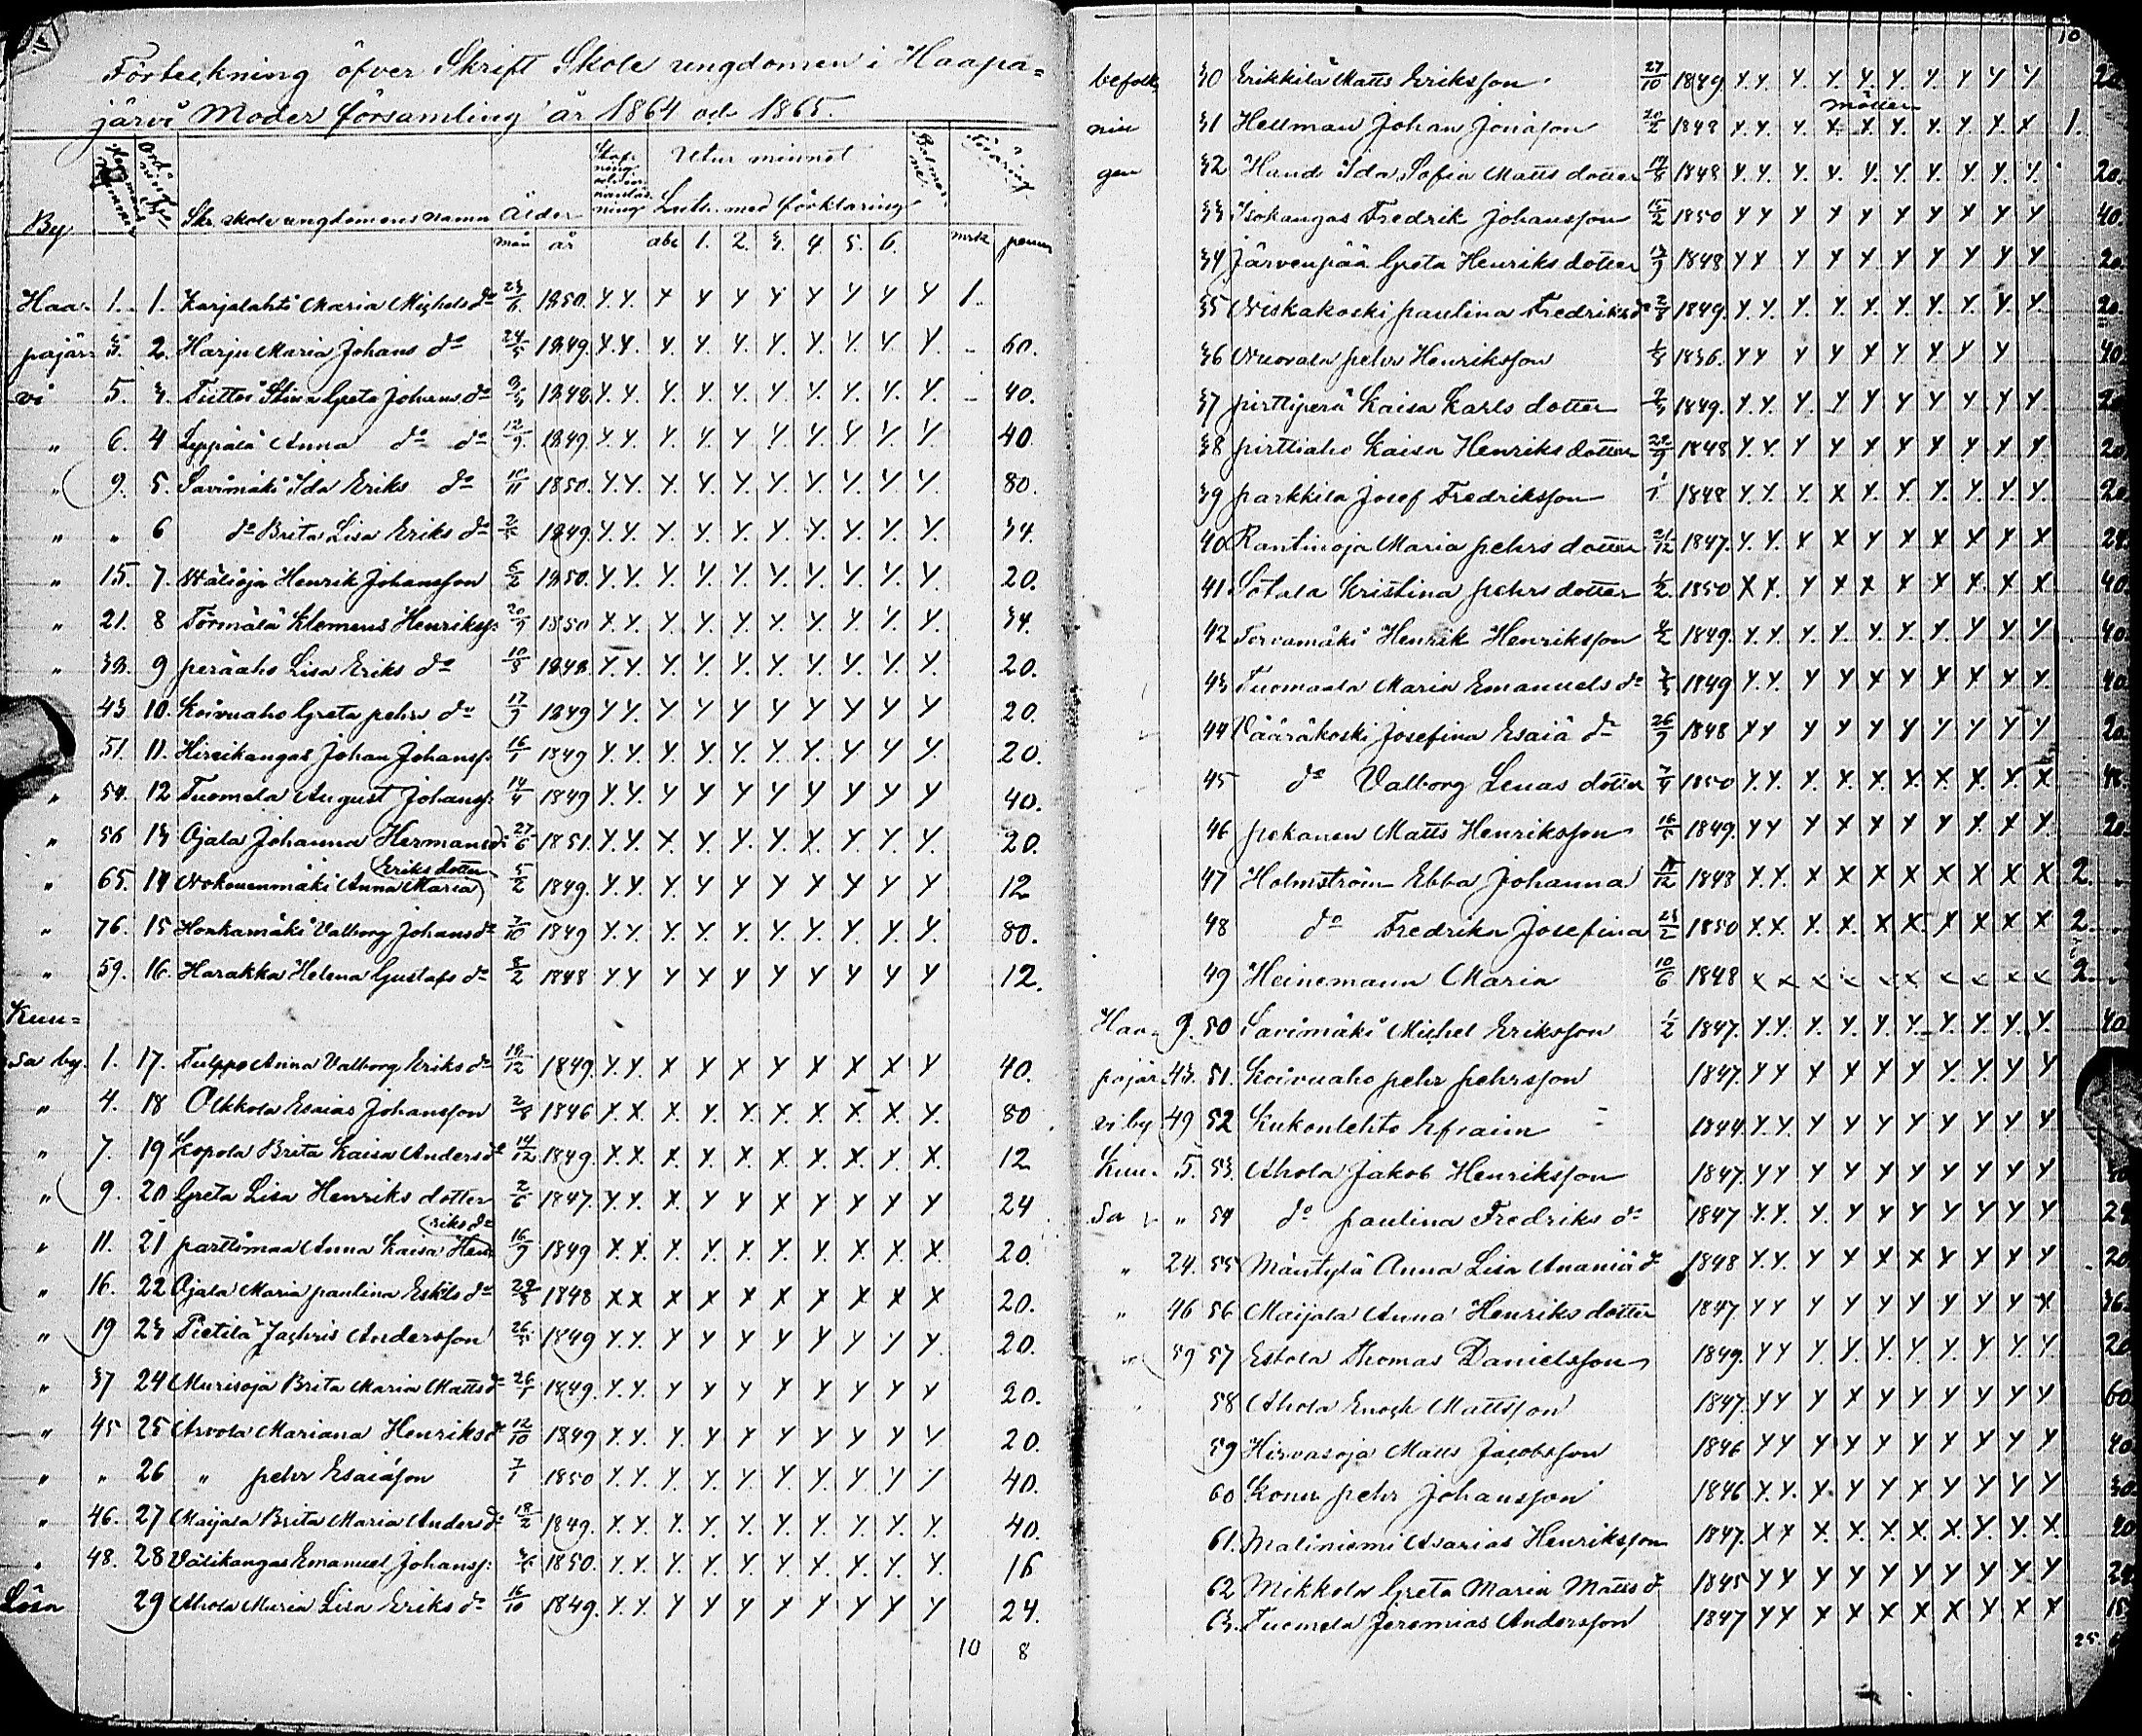 Förteckning öfver Skrift Skole ungdomen i Haapa=
järvi Moder församling år 1864 och 1865.
By Skr. skole ungdomens namn Ålder Utur minnet
Luth. med förklaring
mån år abc 1. 2. 3. 4. 5. 6. mrk penni
Haa- 1. 1. Karjalahti Maria Michels do 23/6 1850. Y. Y. Y Y Y Y Y Y Y Y 1.
pajär- 3. 2. Harju Maria Johans do 24/5 1849. Y. Y. Y. Y. Y. Y. Y. Y. Y. Y. - 60.
vi 5. 3. Tuttei Stina Greta Johans do 1848. Y. Y. Y. Y. Y. Y. Y. Y. Y. Y. - 40.
" 6. 4 Leppälä Anna do do 12/9 1849. Y. Y. Y. Y. Y. Y. Y. Y. Y. Y. 40.
" 9. 5. Savimäki Ida Eriks do 10/11 1850. Y. Y. Y. Y. Y. Y. Y. Y. Y. Y. 80.
" " 6 do Brita Lisa Eriks do 1849. Y. Y. Y. Y. Y. Y. Y. Y. Y. Y. 34.
" 15. 7. Wälioja Henrik Johansson 6/2 1850. Y. Y. Y. Y. Y. Y. Y. Y. Y. Y. 20.
" 21. 8 Törmälä Klemens Henrikss: 20/9 1850 Y. Y. Y. Y. Y. Y. Y. Y. Y. Y. 34.
" 38. 9 peräaho Lisa Eriks do 10/8 1848. Y. Y. Y. Y. Y. Y. Y. Y. Y. Y. 20.
43 10. Koivuaho Greta pehrs do 17/9 1849 Y Y. Y Y Y Y Y Y Y Y 20.
51. 11. Hirsikangas Johan Johanss: 16/1 1849 Y. Y. Y. Y. Y. Y. Y. Y. Y. Y. 20.
" 54. 12 Tuomela August Johanss: 14/4 1849 Y. Y. Y Y Y Y Y Y Y Y 40.
" 56 13 Ojala Johanna Hermans d: 27/6 1851. Y. Y. Y. Y. Y. Y. Y. Y. Y. Y. 20.
Eriks dotter
" 65. 14 Nokouenmäki Anna Maria 5/2 1849. Y. Y. Y Y Y Y Y Y Y Y 12
" 76. 15 Honkamäki Valborg Johans do 7/10 1849 Y. Y. Y. Y. Y. Y. Y. Y. Y. Y. 80.
" 59. 16. Harakka Helena Gustafs do 8/2 1848 Y Y Y Y Y Y Y Y Y Y 12.
Kuu=
sa by. 1. 17. Tulppo Anna Valborg Eriks do 18/12 1849. Y. Y. X X X Y X X X Y 40.
" 4. 18 Olkkola Esaias Johansson 2/8 1846 Y. X. X. Y. Y. X. X. X. X. Y. 80
" 7. 19 Kopola Brita Kaisa Anders do 14/12 1849. X. X. X. Y. X. X. X. X. Y. X. 12
" 9. 20 Greta Lisa Henriks dotter 2/6 1847. Y. Y. X. Y Y X Y Y Y Y 24
riks do
" 11. 21 parttimaa Anna Kaisa Hen 16/9 1849 X. X. Y. X. X. X. Y. X. X. X. 20.
" 16. 22 Ojala Maria paulina Eskils do 29/8 1848 X X X X X X X X X X 20.
" 19 23 Pietilä Zachris Andersson 1849 Y. Y. Y Y Y Y Y Y Y Y. 20.
" 37 24 Murisoja Brita Maria Matts do 26/1 1849. Y. Y. Y Y Y Y Y Y Y Y 20.
" 45 25 Arvola Mariana Henriks do 12/10 1849 Y. Y. Y. Y Y Y Y Y Y Y 20.
" " 26 " pehr Esaiäson 7/1 1850 Y. Y. Y. Y. Y. Y. Y. Y. Y. Y 40.
" 46. 27 Maijala Brita Maria Anders do 18/2 1849. Y. Y. Y. Y. Y. Y. Y. Y. Y. Y. 40.
" 48. 28 Välikangas Emanuel Johanss: 1850. Y. Y. Y. Y. Y. Y. Y. Y. Y. Y. 16
Lösa 29 Ahola Maria Lisa Eriks do 16/10 1849. Y. Y. Y Y Y Y Y Y Y Y 24.
10 8
10
befolk, 30 Erikkilä Matts Eriksson 27/10 1849. Y. Y. Y. Y. Y. Y. Y. Y Y Y
nin 31 Hellman Johan Jonäson 20/2 1848 Y. Y. Y. X. X. Y. Y. Y. Y. X 1.
gen 32 Hand Ida Sofia Matts dotter 1848 Y. Y. Y. Y. Y. Y. Y. Y. Y. Y. 20.
33 Isokangas Fredrik Johansson 15/2 1850 Y Y Y Y Y Y Y X Y Y 40.
34 Järvenpää Greta Henriks dotter 13/9 1848 Y Y Y Y Y Y Y Y Y Y 20.
35 Niskakoski paulina Fredriks do 2/8 1849. Y. Y. Y. Y. Y. Y. Y. Y. Y. Y. 20.
36 Nuorala pehr Henriksson 1836. Y Y Y Y Y Y Y Y Y 40.
37 pirttiperä Kaisa Karls dotter 1849. Y. Y. Y. Y Y Y Y Y Y Y.
38 pirttiaho Kaisa Henriks dotter 22/9 1848 Y. Y. Y Y Y Y Y Y Y Y 20.
39 parkkila Josef Fredriksson 1/1 1848 Y. Y. Y. X Y. Y. Y. Y. Y. Y. 20
40 Rantinoja Maria pehrs dotter 21/12 1847. Y. Y. Y X Y Y Y Y X Y 24.
41 Sotala Kristina pehrs dotter 1850 X X. Y X X Y Y X. X. X. 40
42 Torvamäki Henrik Henriksson 1849. Y. Y. Y. Y. Y. Y. Y. Y. Y. Y. 40.
43 Tuomaala Maria Emanuels do 1849 Y. Y. Y Y X Y. X. Y. X. Y. 40.
44 Vääräkoski Josefina Esaiä do 26/9 1848 Y Y Y Y Y Y Y Y Y Y 20.
45 do Valborg Lenas dotter 7/4 1850 Y. Y. Y. X. X. X. X. X. Y. X.
46 pekanen Matts Henriksson 1849. Y Y Y X X Y Y Y. X Y. 20.
47 Holmström Ebba Johanna 1848 Y. Y. X X X X X X X X 2.
48 do Fredrika Josefina 23/2 1850 X. X. Y. X. X. X. Y X X X 2.
49 Heinemann Maria 10/6 1848 X X X X X X X X X X 2.
Haa- 9. 50 Savimäki Michel Eriksson 1/2 1847. Y. Y. Y. Y. Y. Y. Y. Y. Y. Y. 40
pajär 43. 51. Koivuaho pehr pehrsson 1847. Y Y X X X Y. Y. Y. Y. Y
vi by 49 52 Kukonlehto Efraim 1844. Y. Y. Y Y Y Y Y Y Y. Y.
Kuu- 5. 53. Ahola Jakob Henriksson 1847. Y Y Y Y Y Y Y Y Y Y
sa " 54 do paulina Fredriks do 1847 Y. Y. Y. Y Y Y Y Y Y Y 24
" 24. 55 Mäntylä Anna Lisa Ananiä d. 1848 Y. Y. Y Y X X Y Y Y Y 20.
" 46 56 Maijala Anna Henriks dotter 1847. Y Y Y Y Y Y Y Y Y X 36
" 59 57 Eskola Thomas Danielsson 1849. Y Y Y. Y. Y. Y. Y. Y. Y. Y. 20
58 Ahola Enoch Mattsson 1847. Y Y Y X Y Y Y Y Y Y. 60.
59 Hirvasoja Matts Jacobsson 1846 Y Y Y Y Y Y Y Y Y Y. 40.
60 Konu pehr Johansson 1846 Y. Y. X. Y Y Y X Y Y Y 30.
61. Maliniemi Asarias Henriksson 1847. X X X. X. X. X. X. Y. Y. X. 40
62 Mikkola Greta Maria Matts d. 1845 Y Y Y Y Y Y Y Y X Y 24
63. Tuomela Jeremias Andersson 1847 Y Y X X X X X Y X X
25.